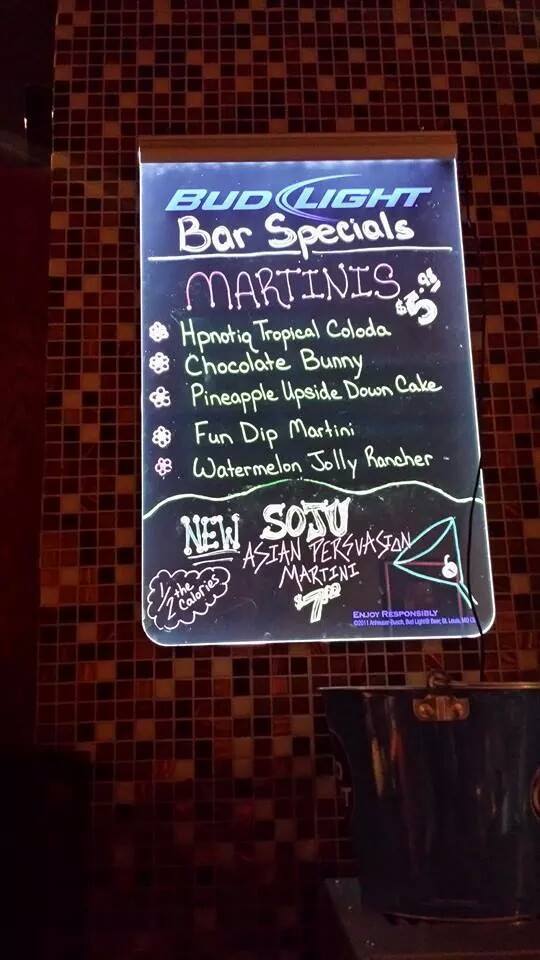 BUD LIGHT
Bar Specials
MARTINIS $5.95
Hpnotiq Tropical Coloda
Chocolate Bunny
Pineapple Upside Down Cake
Fun Dip Martini
Watermelon Jolly Rancher
NEW SOJU
ASIAN PERSVASION
MARTINI
$7.00
1/2 the Calories
ENJOY RESPONSIBLY
©2011 Anheuser-Busch, Bud Light® Beer, St. Louis, MO